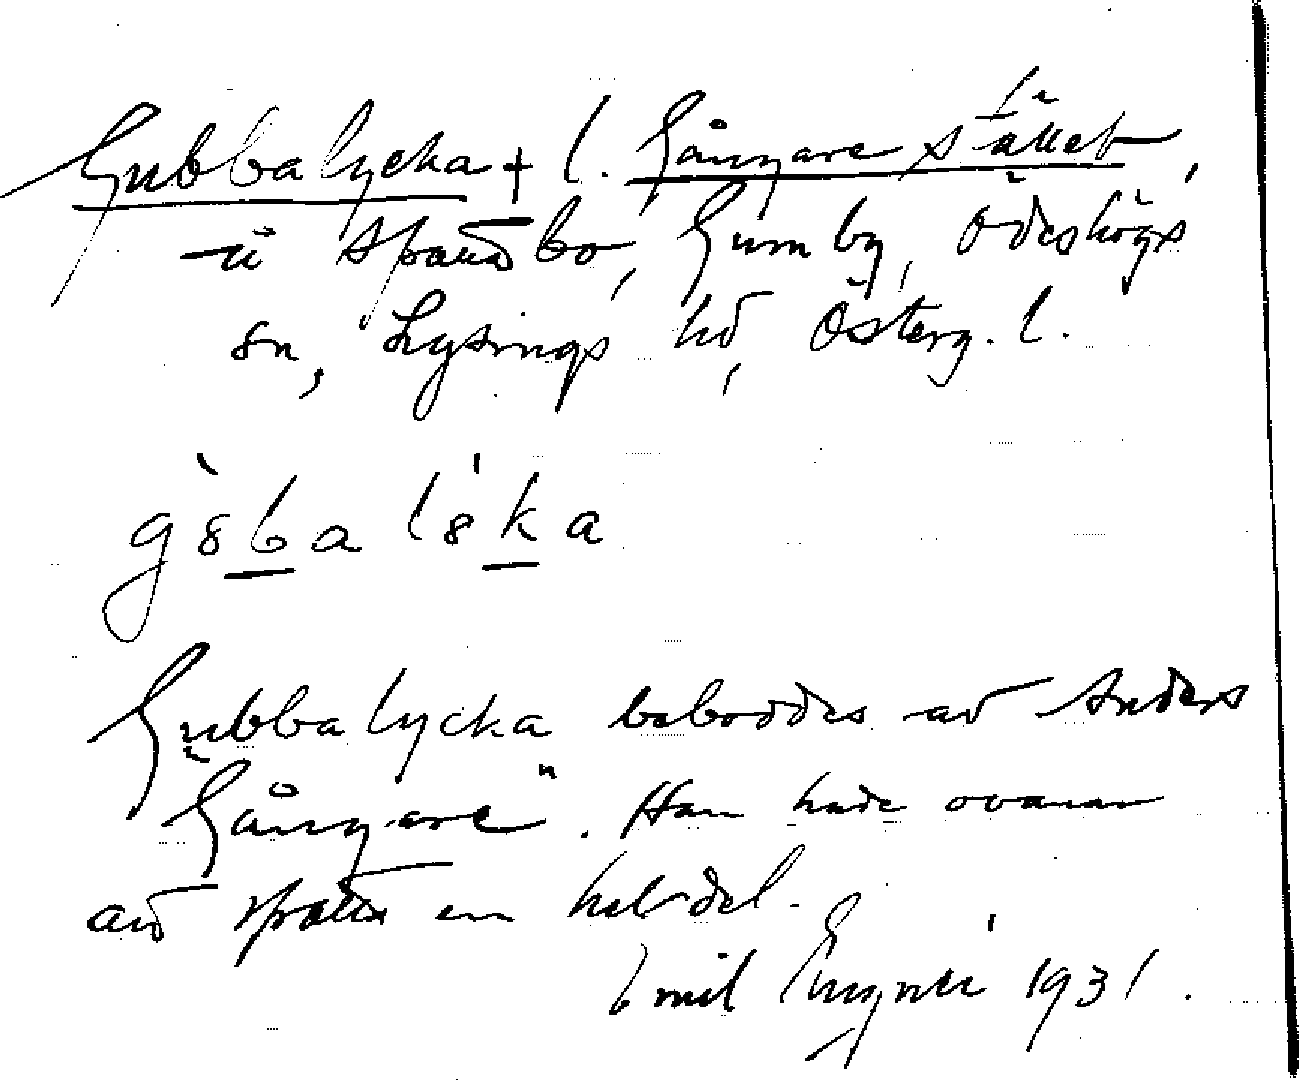 Gubbalycka + l. Gångarestället,
u Spandbo, Gumby, Ödeshögs
sn, Lysings hd, Österg. l.
gɞba lɞka
Gubbalycka beboddes av Anders
"Gångare". Han hade ovanan
att spotta en hel del.
Emil 1931.